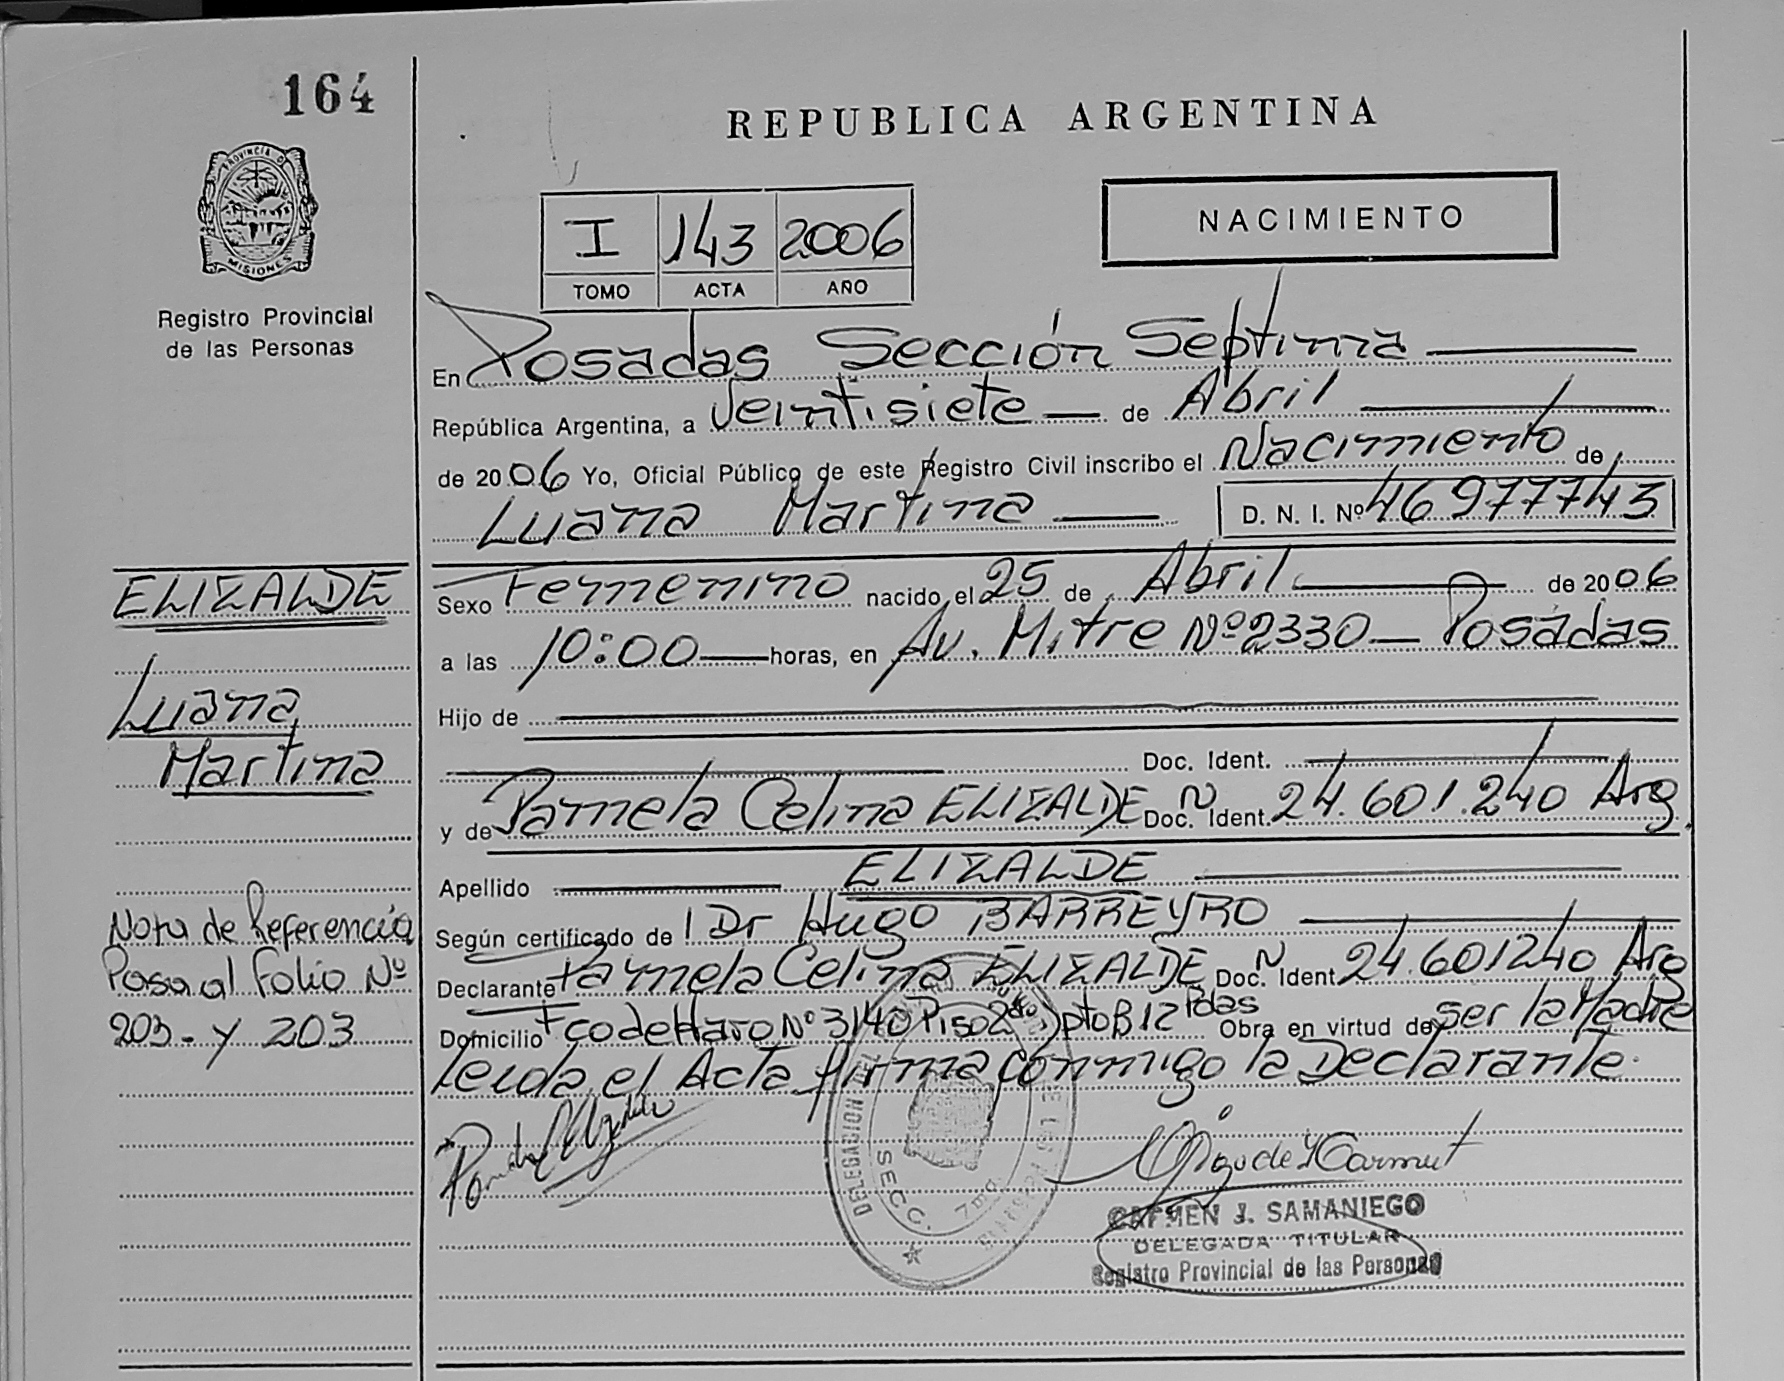 164
REPUBLICA ARGENTINA
PROVINCIA DE
MISIONES
Registro Provincial
de las Personas
I 143 2006
TOMO ACTA AÑO
NACIMIENTO
En Posadas Sección Septima
República Argentina, a Veintisiete de Abril
de 2006 Yo, Oficial Público de este Registro Civil inscribo el Nacimiento de
Luana Martina D. N. I. Nº 46977743
ELIZALDE
Luana
Martina
Sexo Femenino nacido el 25 de Abril de 2006
a las 10:00 horas, en Av. Mitre Nº 2330 Posadas
Hijo de
Doc. Ident.
y de Pamela Celina ELIZALDE Doc. N Ident. 24.601.240 Arg.
Apellido ELIZALDE
Nota de Referencia
Pasa al Folio Nº
203 - y 203
Según certificado de Dr Hugo BARREYRO
Declarante Pamela Celina ELIZALDE Doc. N Ident 24.601240 Arg
Domicilio Fco de Haro Nº 3140 Piso 2do Dpto B12 Pdas Obra en virtud de ser la Madre
Leida el Acta firma conmigo la Declarante.
DELEGACION
SECC. 7ma
CARMEN J. SAMANIEGO
DELEGADA TITULAR
Registro Provincial de las Personas